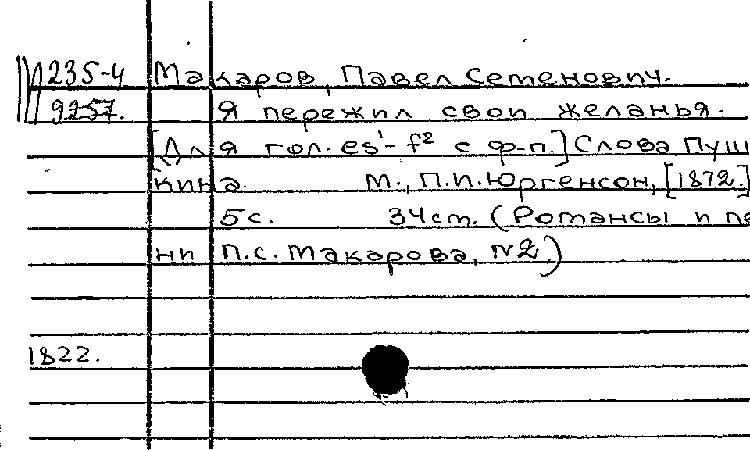 235-4 Макаров, Павел Семенович.
9257. Я пережил свои желанья.
[Для гол. es¹- f² с ф-п.] Слова Пуш
кина М., П.И. Юргенсон, [1872.]
5с. 34 cm. (Романсы и пе
ни П.С. Макарова, N2.)
1822.